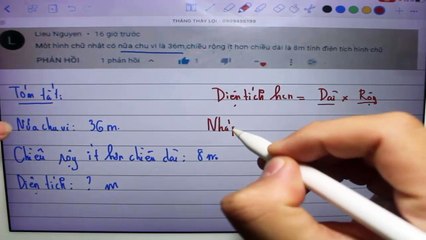 THẦNG THẦY LỢI - 0909898789
Lieu Nguyen • 16 giờ trước
Một hình chữ nhật có nửa chu vi là 36m,chiều rộng ít hơn chiều dài là 8m tính điện tích hình chữ
PHẢN HỒI 1 phản hồi 1
Tóm tắt: Diện tích hcn = Dài x Rộng
Nửa chu vi: 36 m. Nhá
Chiều rộng ít hơn chiều dài: 8 m
Diện tích: ? m